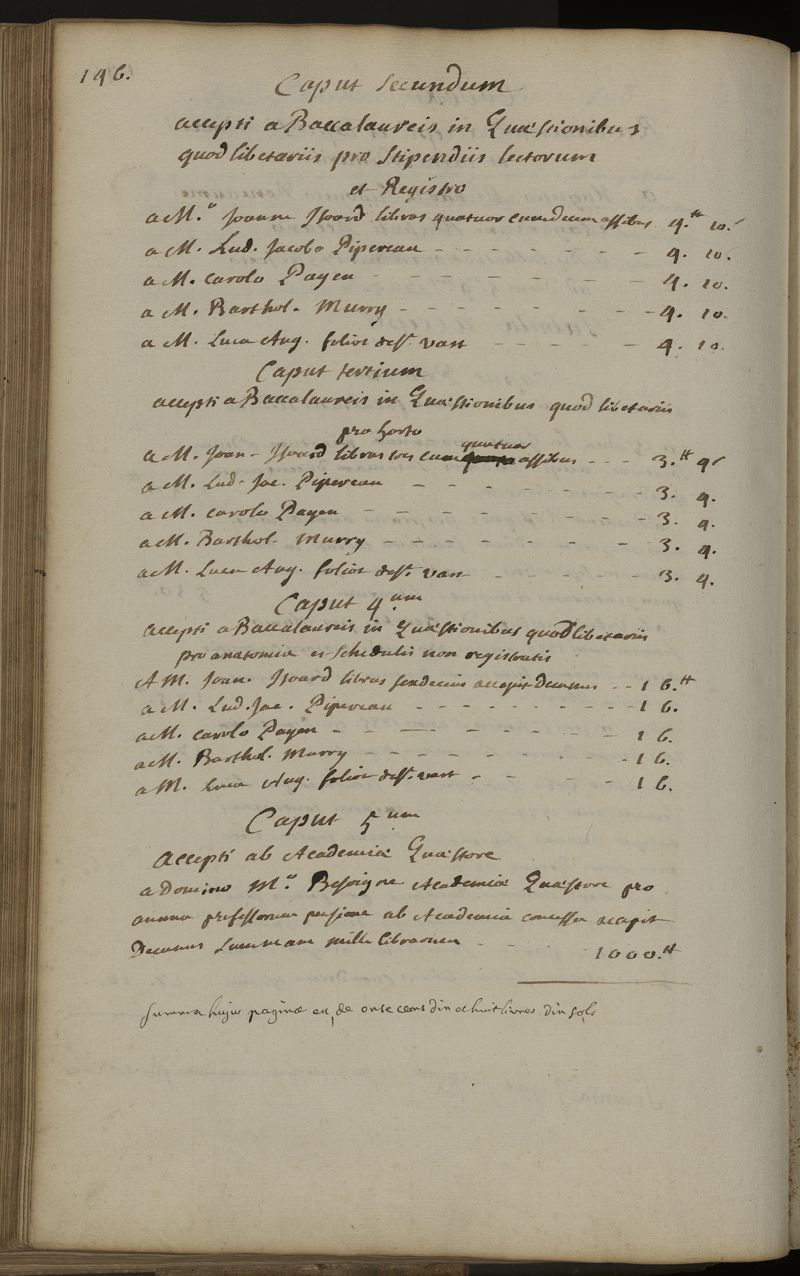 196.
Caput secundum
accepti a Baccalaureis in Quæstionibus
quodlibetariis pro Stipendiis lectorum
et Registro
a M.o Joanne Isoard libras quatuor cum decem assibus 4.tt 10.s
a M. Lud. Jacobo Pipereau - - - - - - - 4. 10.
a M. Carolo Payen - - - - - - - 4. 10.
a M. Barthol. Murry - - - - - - - 4. 10.
a M. Luca Aug. foliot dest. vast - - - - - 4. 10.
Caput tertium
accepti a Baccalaureis in Quæstionibus quodlibetariis
pro horto
quatuor
a M. Joan. Isoard libras tres cum assibus - - - 3.tt 4s
a M. Lud. Jac. Pipereau - - - - - - - 3. 4.
a M. Carolo Payen - - - - - - - - 3. 4.
a M. Barthol. Murry - - - - - - - 3. 4.
a M. Luca Aug. foliot dest. vast - - - - - 3. 4.
Caput 4.um
Accepti a Baccalaureis in Quæstionibus quodlibetariis
pro anatomia et schedulis non registratis
A M. Joan. Isoard libras sexdecim accepit Decanus - - 16.tt
a M. Lud. Jac. Pipereau - - - - - - - - 16.
a M. Carolo Payen - - - - - - - 16.
a M. Barthol. Murry - - - - - - - 16.
a M. Luca Aug. foliot dest. vast - - - - 16.
Caput 5um
Accepti ab Academiæ Quæstore
a Domino M.o Besoigne Academiæ Quæstore pro
annua professorum pensione ab Academia concessa accepit
Decanus summam mille librarum - - - 1000.tt
Summa hujus paginæ est de onse cens dix et huit livres dix sols